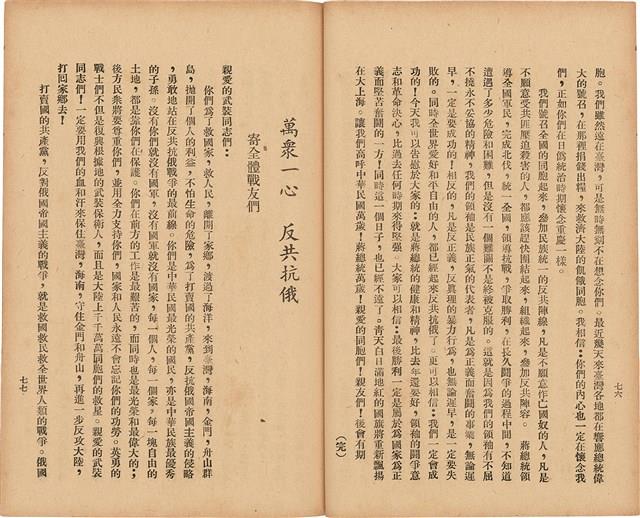 七六
胞。我們雖然遠在臺灣，可是無時無刻不在想念你們。最近幾天來臺灣各地都在響應總統偉
大的號召，在那裡捐錢出糧，來救濟大陸的飢餓同胞。我相信：你們的內心也一定在懷念我
們，正如你們在日僞統治時期懷念重慶一樣。
我們號召全國的同胞起來，參加民族統一的反共陣線，凡是不願意作亡國奴的人，凡是
不願意受共匪壓迫殺害的人，都應該趕快團結起來，組織起來，參加反共陣容。　蔣總統領
導全國軍民，完成北伐，統一全國，領導抗戰，爭取勝利，在長久鬭爭的過程中間，不知道
遭遇了多少危險和困難，但是沒有一個難關不是終被克服的。這就是因爲我們的領袖有不屈
不撓永不妥協的精神，我們的領袖是民族正氣的代表者，凡是爲正義而奮鬭的事業，無論遲
早，一定是要成功的！相反的，凡是反正義，反眞理的暴力行爲，也無論遲早，是一定要失
敗的。同時全世界愛好和平自由的人，都已經起來反共抗俄了。更可以相信：我們一定會成
功的！今天我可以告慰於大家的：就是蔣總統的健康和精神，比去年還要好，領袖的鬭爭意
志和革命決心，比過去任何時期來得堅强。大家可以相信：最後勝利一定是屬於爲國家爲正
義而堅苦奮鬭的一方！同時這一個日子，也已經不遠了。靑天白日滿地紅的國旗將重新飄揚
在大上海。讓我們高呼中華民國萬歲！蔣總統萬歲！親愛的同胞們！親友們！後會有期
（完）
萬衆一心　反共抗俄
寄全體戰友們
親愛的武裝同志們：
你們爲了救國家，救人民，離開了家鄉，渡過了海洋，來到臺灣，海南，金門，舟山群
島，拋開了個人的利益，不怕生命的危險，爲了打賣國的共產黨，反抗俄國帝國主義的侵略
，勇敢地站在反共抗俄戰爭的最前線。你們是中華民國最光榮的國民，亦是中華民族最優秀
的子孫。沒有你們就沒有國軍，沒有國軍就沒有國家，每一個人，每一個家，每一塊自由的
土地，都是靠你們在保護。你們在前方的工作是最艱苦的，而同時也是最光榮和最偉大的；
後方民衆將要尊重你們，並用全力支持你們，國家和人民永遠不會忘記你們的功勞。英勇的
戰士們不但是復興根據地的武裝保衞人，而且是大陸上千千萬萬同胞們的救星。親愛的武裝
同志們！一定要用我們的血和汗來保住臺灣，海南，守住金門和舟山，再進一步反攻大陸，
打回家鄉去！
打賣國的共產黨，反對俄國帝國主義的戰爭，就是救國救民救全世界人類的戰爭。俄國
七七